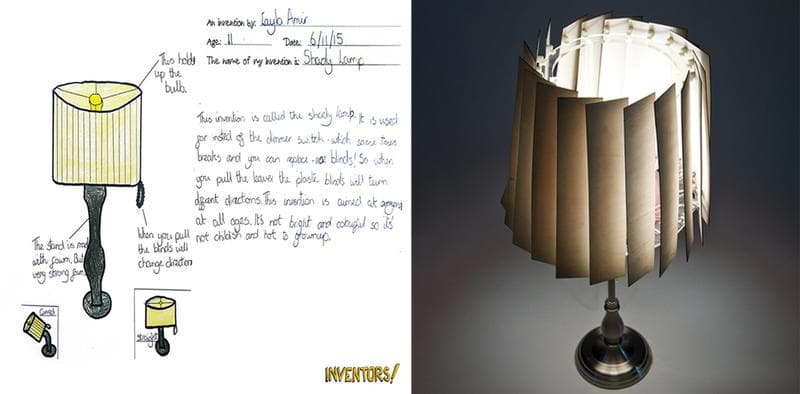 An invention by: Layla Amir
Age: 11 Date: 6/11/15
The name of my invention is: Shady Lamp
This holds
up the
bulb.
This invention is called the shady lamp. It is used
for insted of the dimmer switch which some times
breaks and you can replace blinds! So when
you pull the leaver the plastic blinds will turn
diffrant directions. This invention is aimed at
at all ages. It's not bright and colourful so it's
not childish and not to grownup.
The stand is mad
with fowm. But
very strong fowm.
When you pull
the blinds will
change direction
Curved
Straight
INVENTORS!